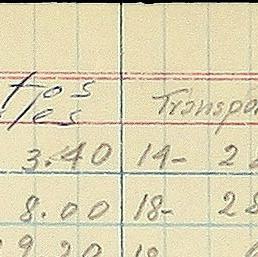 tos
les Transpo
3.40 14- 2
8.00 18- 28
9 20 18